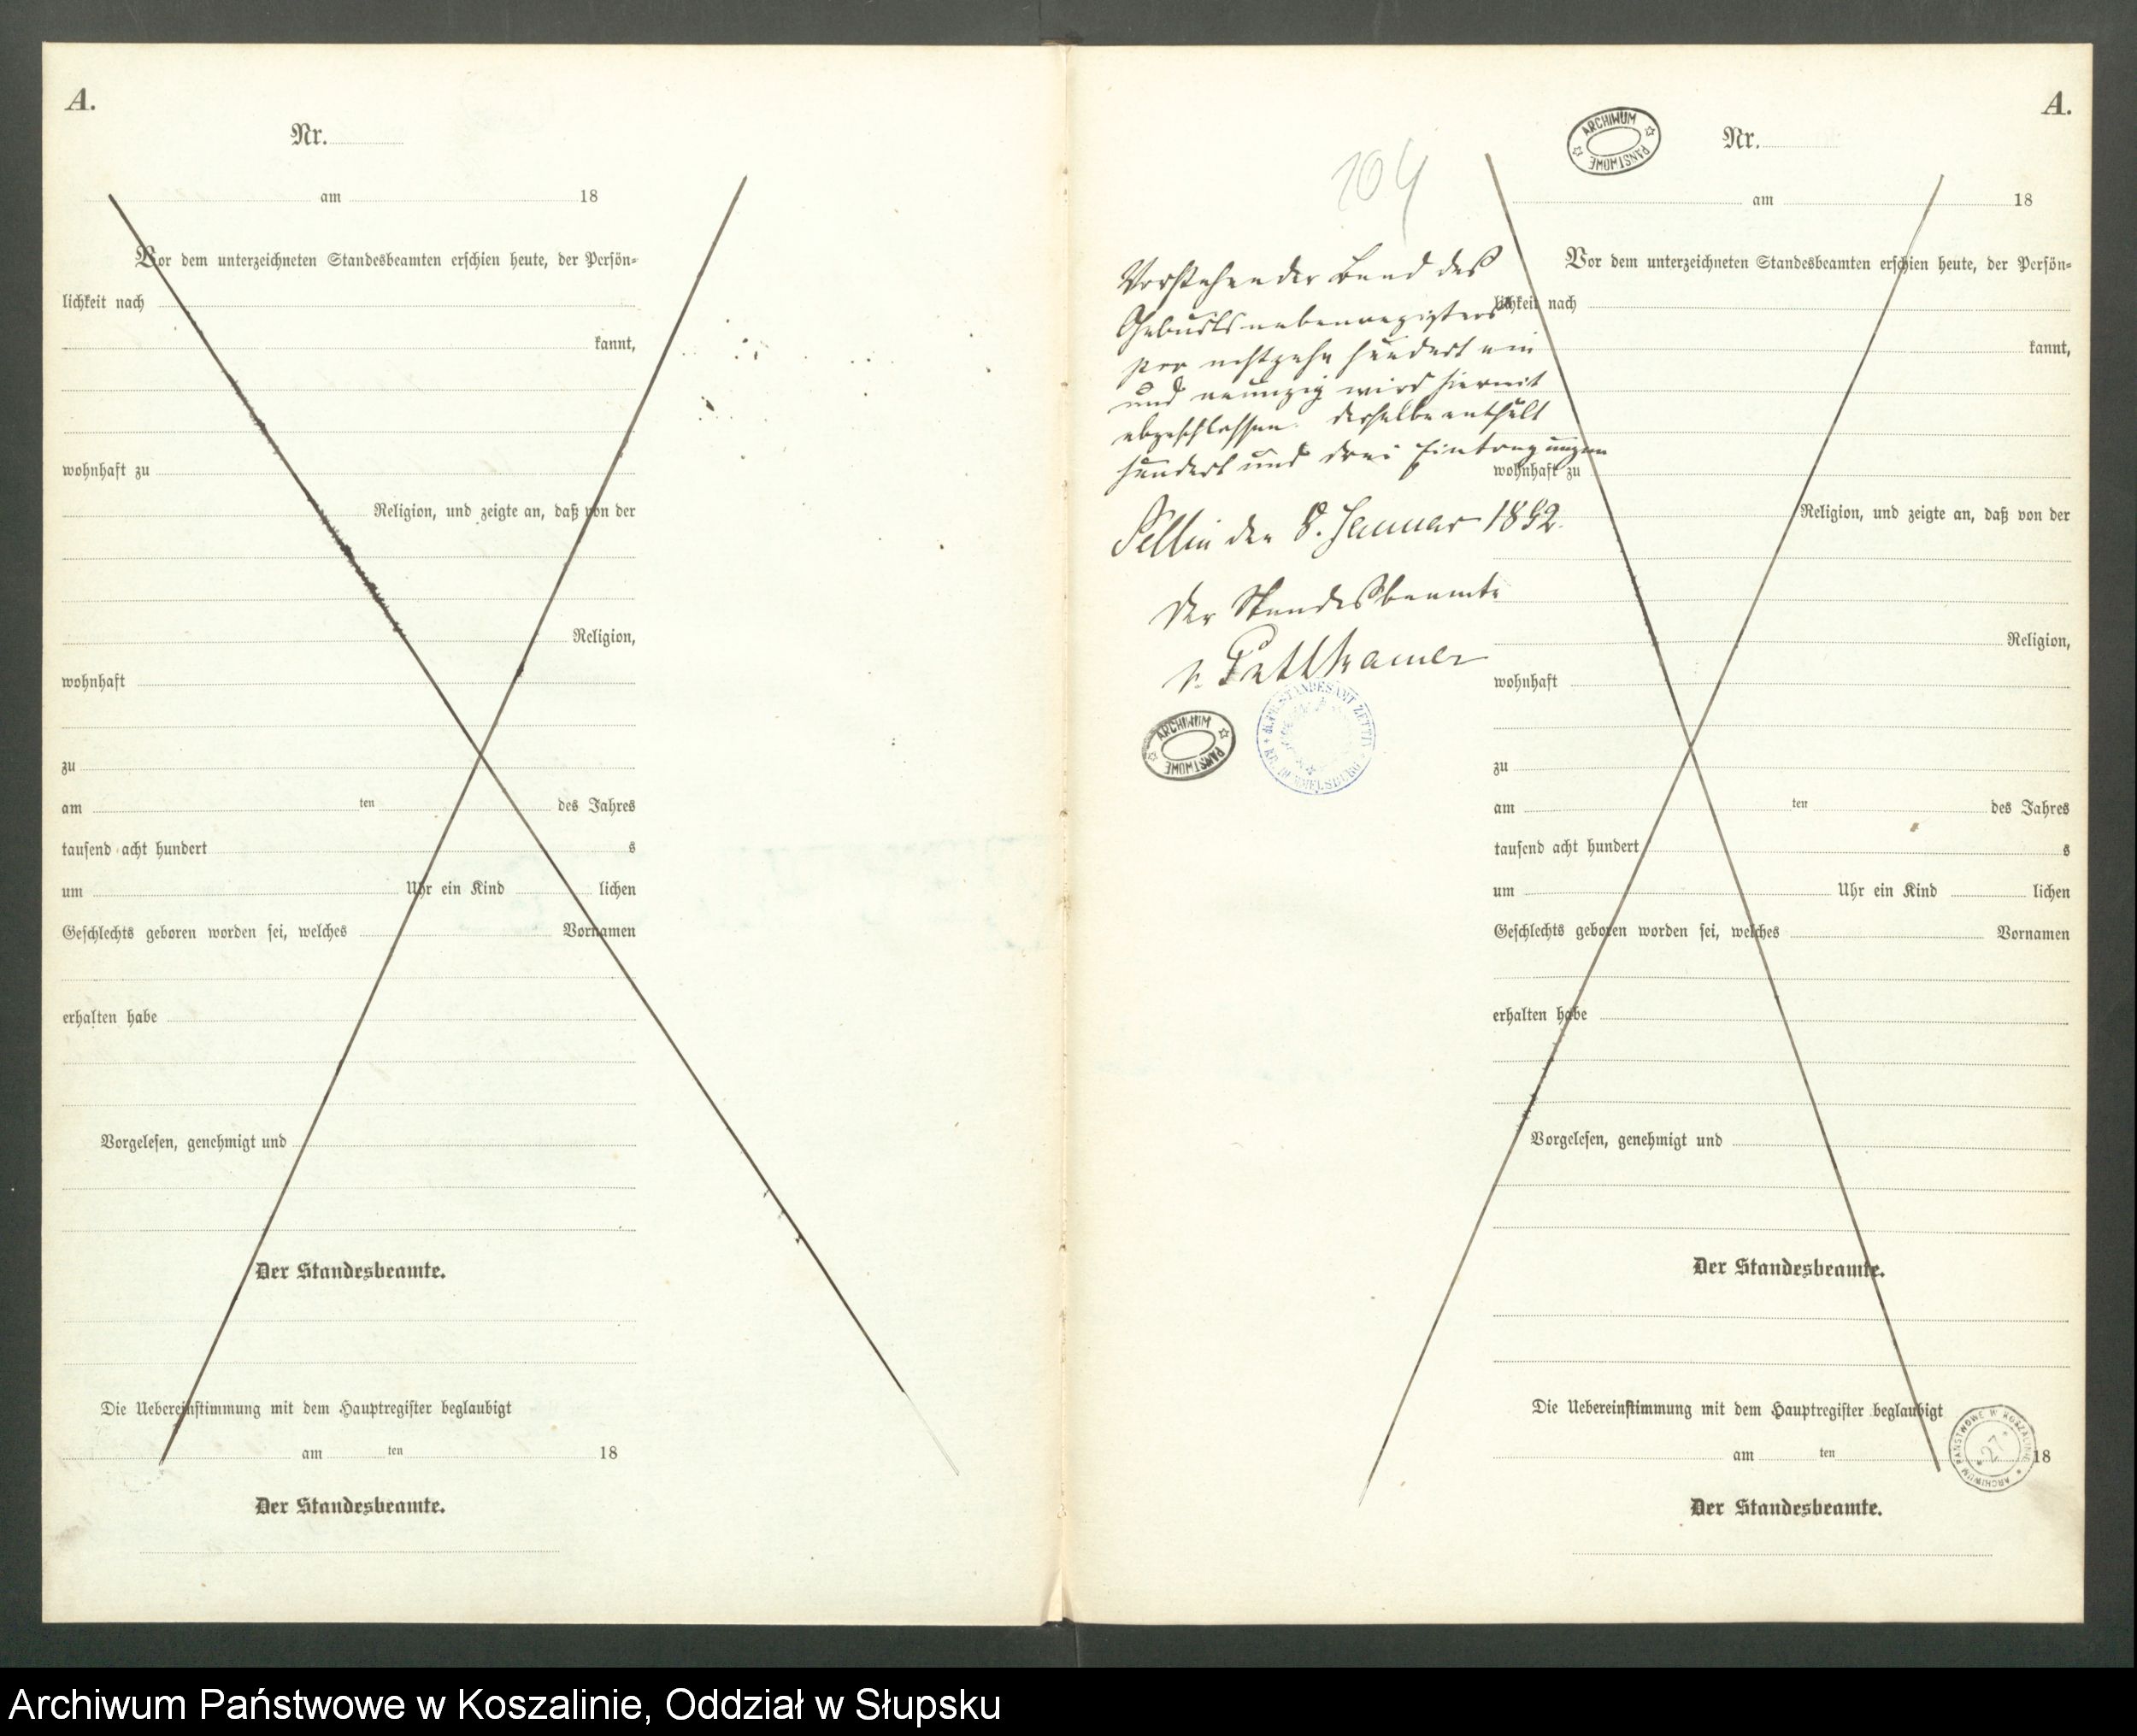 A.
Nr.
am 18
Vor dem unterzeichneten Standesbeamten erschien heute, der Persön-
lichkeit nach
kannt,
wohnhaft zu
Religion, und zeigte an, daß von der
Religion,
wohnhaft
zu
am ten des Jahres
tausend acht hundert s
um Uhr ein Kind lichen
Geschlechts geboren worden sei, welches Vornamen
erhalten habe
Vorgelesen, genehmigt und
Der Standesbeamte.
Die Uebereinstimmung mit dem Hauptregister beglaubigt
am ten 18
Der Standesbeamte.
A.
ARCHIWUM PAŃSTWOWE
Nr.
104
am 18
Vorstehender Band des
Geburtsnebenregisters
pro achtzehn hundert ein
und neunzig wird hiermit
abgeschlossen. Derselbe enthält
hundert und drei Eintragungen
Sellin den 8. Januar 1892.
Der Standesbeamte
v. Puttkamer
ARCHIWUM PAŃSTWOWE
K. PR. STANDESAMT ZETTIN
KR. RUMMELSBURG
Vor dem unterzeichneten Standesbeamten erschien heute, der Persön-
lichkeit nach
kannt,
wohnhaft zu
Religion, und zeigte an, daß von der
Religion,
wohnhaft
zu
am ten des Jahres
tausend acht hundert s
um Uhr ein Kind lichen
Geschlechts geboren worden sei, welches Vornamen
erhalten habe
Vorgelesen, genehmigt und
Der Standesbeamte.
Die Uebereinstimmung mit dem Hauptregister beglaubigt
am ten 18
ARCHIWUM PAŃSTWOWE W KOSZALINIE
27
Der Standesbeamte.
Archiwum Państwowe w Koszalinie, Oddział w Słupsku